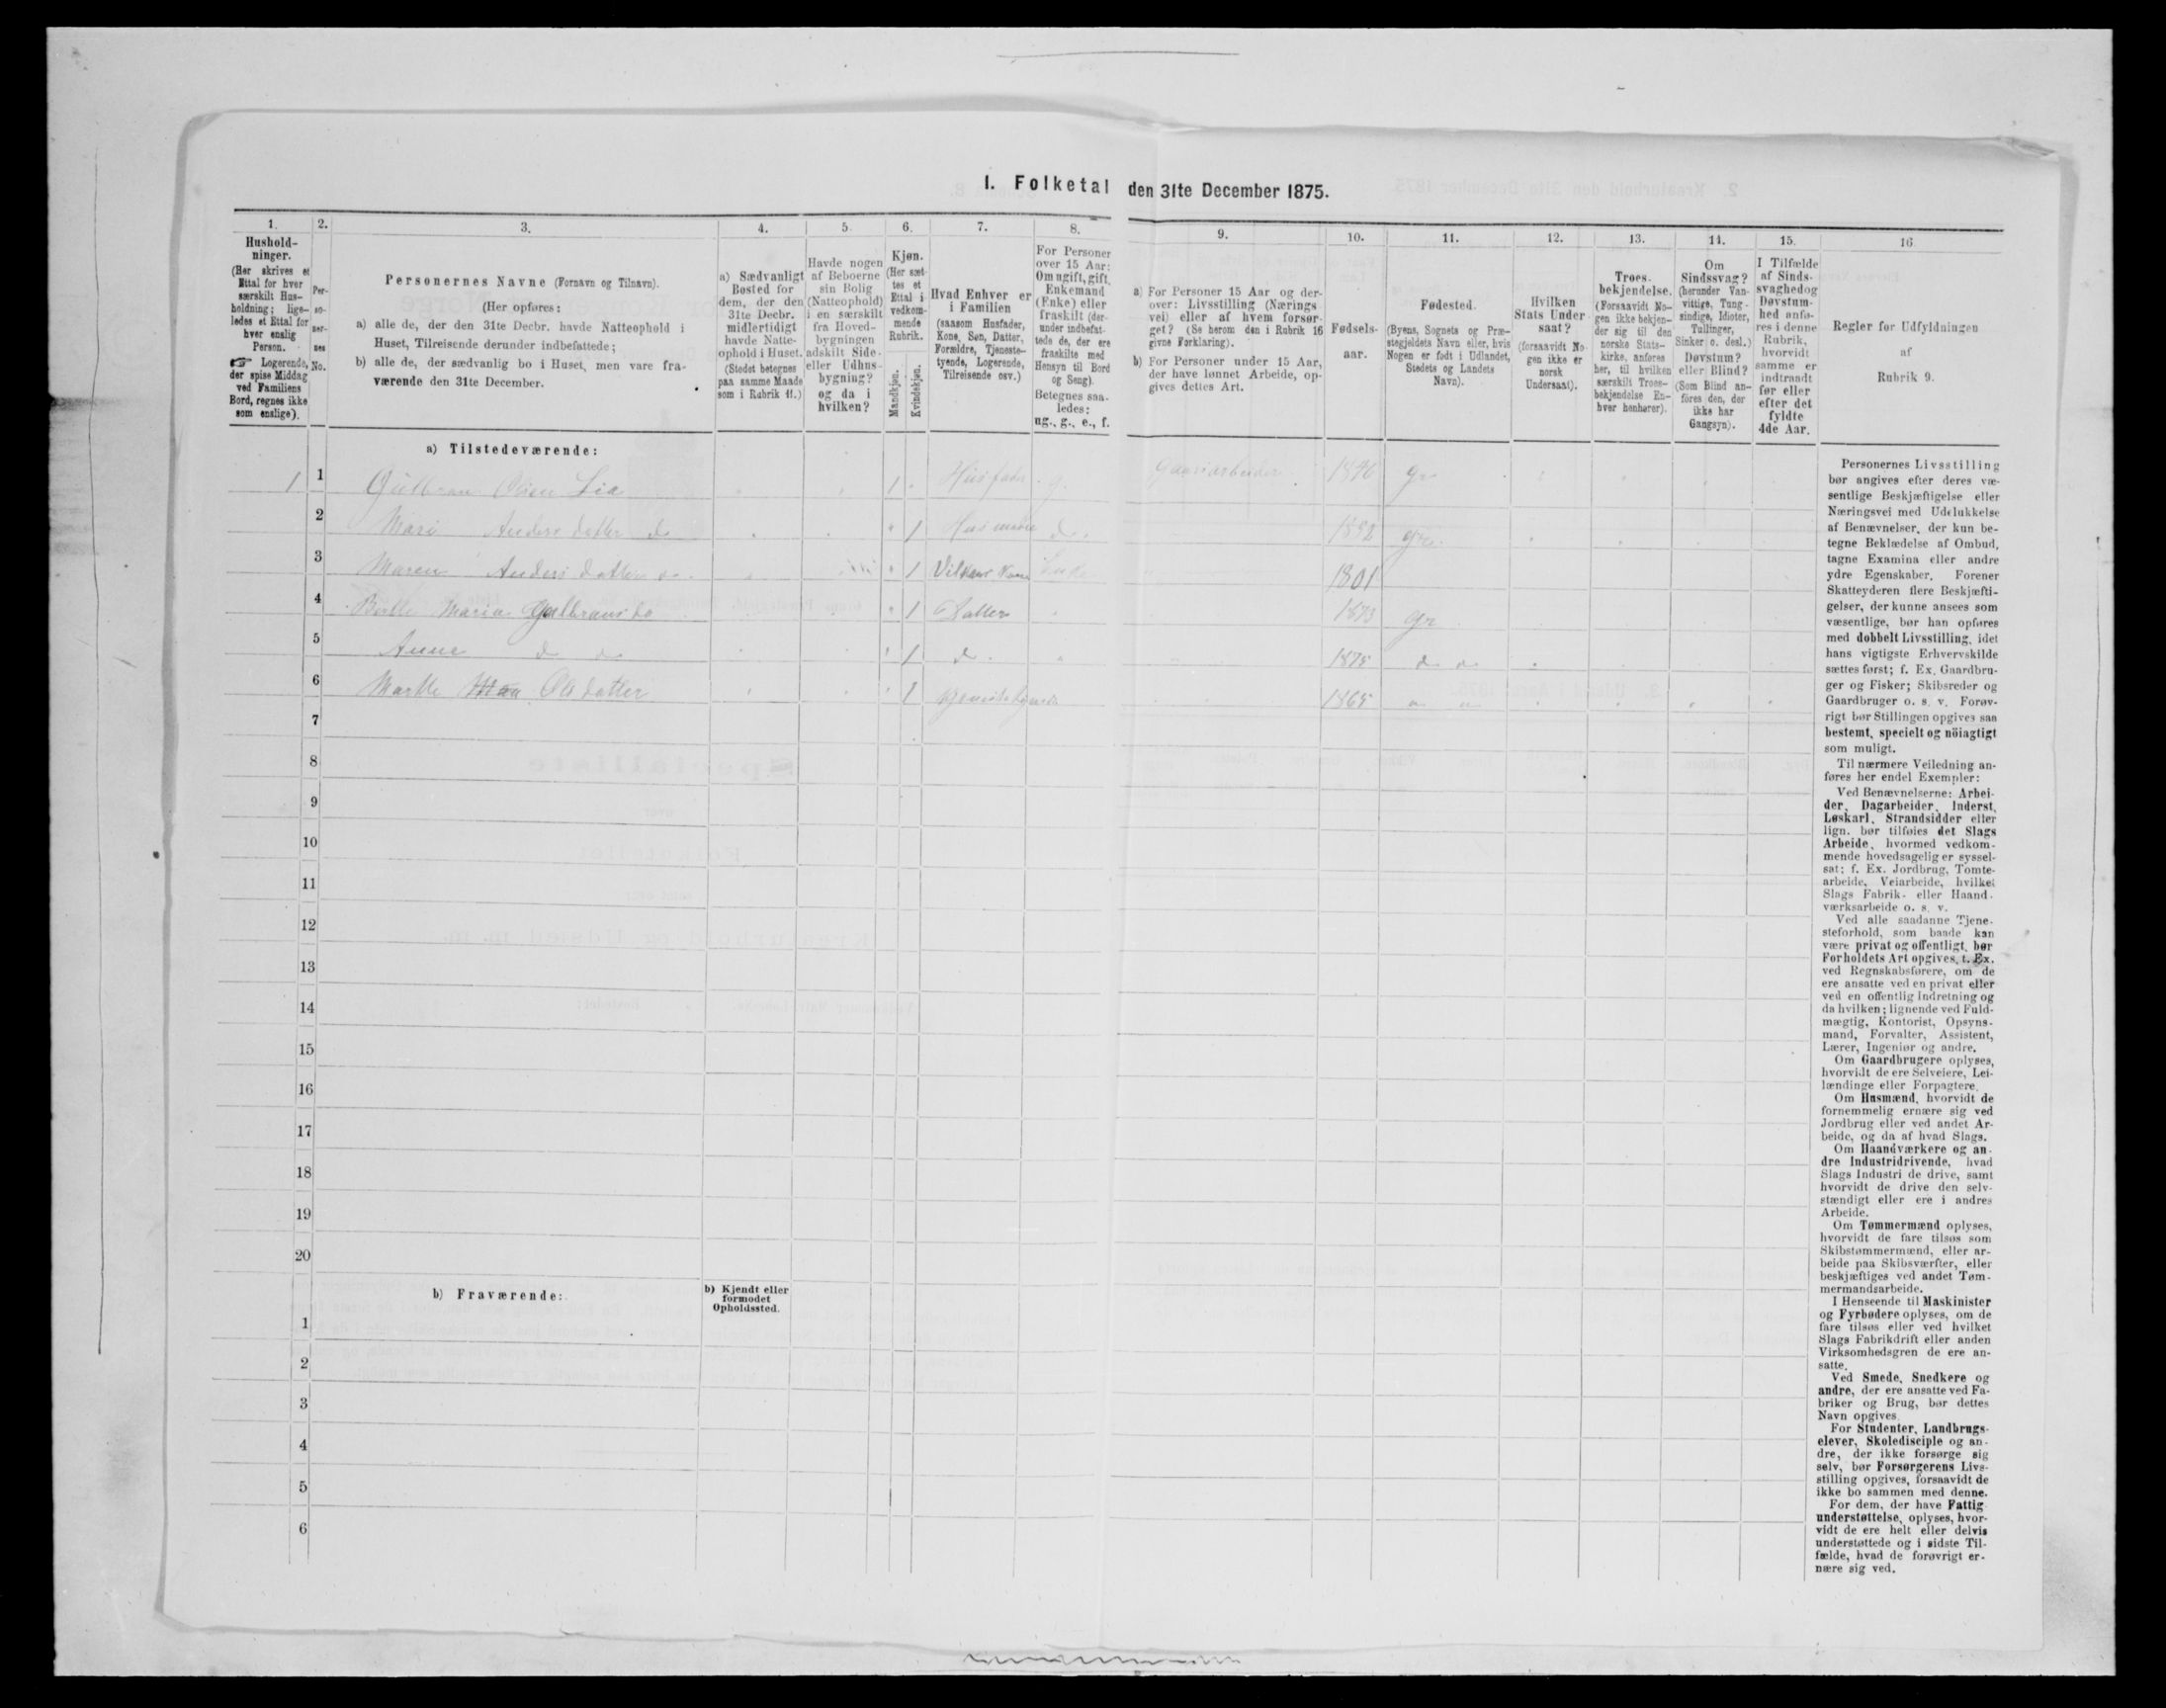 I. Folketal den 31te December 1875.
1.
2.
3.
4.
5.
6.
7.
8.
9.
10.
11.
12.
13.
14.
15.
16
Hushold-
ninger.
(Her skrives et
Ettal for hver
særskilt Hus-
holdning; lige-
ledes et Ettal for
hver enslig
Person.
☞ Logerende,
der spise Middag
ved Familiens
Bord, regnes ikke
som enslige).
Per-
so-
ner-
nes
No.
Personernes Navne (Fornavn og Tilnavn).
(Her opføres:
a) alle de, der den 31te Decbr. havde Natteophold i
Huset, Tilreisende derunder indbefattede;
b) alle de, der sædvanlig bo i Huset, men vare fra-
værende den 31te December.
a) Sædvanligt
Bosted for
dem, der den
31te Decbr.
midlertidigt
havde Natte-
ophold i Huset.
(Stedet betegnes
paa samme Maade
som i Rubrik 11.)
Havde nogen
af Beboerne
sin Bolig
(Natteophold)
i en særskilt
fra Hoved-
bygningen
adskilt Side-
eller Udhus-
bygning?
og da i
hvilken?
Kjøn.
(Her sæt-
tes et
Ettal i
vedkom-
mende
Rubrik.
Mandkjøn.
Kvindekjøn.
Hvad Enhver er
i Familien
(saasom Husfader,
Kone, Søn, Datter,
Forældre, Tjeneste-
tyende, Logerende,
Tilreisende osv.)
For Personer
over 15 Aar:
Om ugift, gift,
Enkemand
(Enke) eller
fraskilt (der-
under indbefat-
tede de, der ere
fraskilte med
Hensyn til Bord
og Seng).
Betegnes saa-
ledes:
ug., g., e., f.
a) For Personer 15 Aar og der-
over: Livsstilling (Nærings
vei) eller af hvem forsør-
get? (Se herom den i Rubrik 16
givne Forklaring).
b) For Personer under 15 Aar,
der have lønnet Arbeide, op-
gives dettes Art.
Fødsels-
aar.
Fødested.
(Byens, Sognets og Præ-
stegjeldets Navn eller, hvis
Nogen er født i Udlandet,
Stedets og Landets
Navn).
Hvilken
Stats Under
saat?
(forsaavidt No-
gen ikke er
norsk
Undersaat).
Troes.
bekjendelse.
(Forsaavidt No-
gen ikke bekjen-
der sig til den
norske Stats-
kirke, anføres
her, til hvilken
særskilt Troes-
bekjendelse En-
hver henhører).
Om
Sindssvag?
(herunder Van-
vittige, Tung-
sindige, Idioter,
Tullinger,
Sinker o. desl.)
Døvstum?
eller Blind?
(Som Blind an-
føres den, der
ikke har
Gangsyn).
I Tilfælde
af Sinds-
svaghedog
Døvstum-
hed anfø-
res i denne
Rubrik,
hvorvidt
samme er
indtraadt
før eller
efter det
fyldte
4de Aar.
Regler for Udfyldningen
af
Rubrik 9.
a) Tilstedeværende:
1 1 Gulbran Olsen Lia 1 Husfader g. Gaardarbeider 1846 Gr
2 Mari Andersdatter do 1 Husmoder do. 1852 Gr
3 Maren Andersdatter do. 1 Vilkaar Kone Enke 1801
4 Berthe Maria Gulbrans do 1 Datter 1873 Gr
5 Anne do do 1 do. 1875 do do
6 Marthe Olsdatter 1 1865
7
8
9
10
11
12
13
14
15
16
17
18
19
20
b) Fraværende:
b) Kjendt eller
formodet
Opholdssted.
1
2
3
4
5
6
Personernes Livsstilling
bør angives efter deres væ-
sentlige Beskjæftigelse eller
Næringsvei med Udelukkelse
af Benævnelser, der kun be-
tegne Beklædelse af Ombud,
tagne Examina eller andre
ydre Egenskaber. Forener
Skatteyderen flere Beskjæfti-
gelser, der kunne ansees som
væsentlige, bør han opføres
med dobbelt Livsstilling, idet
hans vigtigste Erhvervskilde
sættes først; f. Ex. Gaardbru-
ger og Fisker; Skibsreder og
Gaardbruger o. s. v. Forøv-
rigt bør Stillingen opgives saa
bestemt, specielt og nöiagtigt
som muligt.
Til nærmere Veiledning an-
føres her endel Exempler:
Ved Benævnelserne: Arbei-
der, Dagarbeider, Inderst,
Løskarl, Strandsidder eller
lign. bør tilføies det Slags
Arbeide, hvormed vedkom-
mende hovedsagelig er syssel-
sat; f. Ex. Jordbrug, Tomte-
arbeide, Veiarbeide, hvilket
Slags Fabrik- eller Haand-
værksarbeide o. s. v.
Ved alle saadanne Tjene-
steforhold, som baade kan
være privat og offentligt, bør
Forholdets Art opgives, t. Ex.
ved Regnskabsførere, om de
ere ansatte ved en privat eller
ved en offentlig Indretning og
da hvilken; lignende ved Fuld-
mægtig, Kontorist, Opsyns-
mand, Forvalter, Assistent,
Lærer, Ingeniør og andre.
Om Gaardbrugere oplyses,
hvorvidt de ere Selveiere, Lei-
lændinge eller Forpagtere.
Om Husmænd, hvorvidt de
fornemmelig ernære sig ved
Jordbrug eller ved andet Ar-
beide, og da af hvad Slags.
Om Haandværkere og an-
dre Industridrivende, hvad
Slags Industri de drive, samt
hvorvidt de drive den selv-
stændigt eller ere i andres
Arbeide.
Om Tømmermænd oplyses,
hvorvidt de fare tilsøs som
Skibstømmermænd, eller ar-
beide paa Skibsværfter, eller
beskjæftiges ved andet Tøm-
mermandsarbeide.
I Henseende til Maskinister
og Fyrbødere oplyses, om de
fare tilsøs eller ved hvilket
Slags Fabrikdrift eller anden
Virksomhedsgren de ere an-
satte.
Ved Smede, Snedkere og
andre, der ere ansatte ved Fa-
briker og Brug, bør dettes
Navn opgives.
For Studenter, Landbrugs-
elever, Skoledisciple og an-
dre, der ikke forsørge sig
selv, bør Forsørgerens Livs-
stilling opgives, forsaavidt de
ikke bo sammen med denne.
For dem, der have Fattig
understøttelse, oplyses, hvor-
vidt de ere helt eller delvis
understøttede og i sidste Til-
fælde, hvad de forøvrigt er-
nære sig ved.